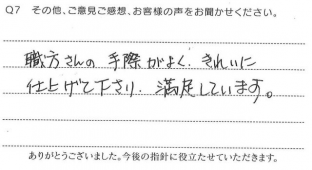 Q7 その他、ご意見ご感想、お客様の声をお聞かせください。
職方さんの手際がよく、きれいに
仕上げて下さり、満足しています。
ありがとうございました。今後の指針に役立たせていただきます。